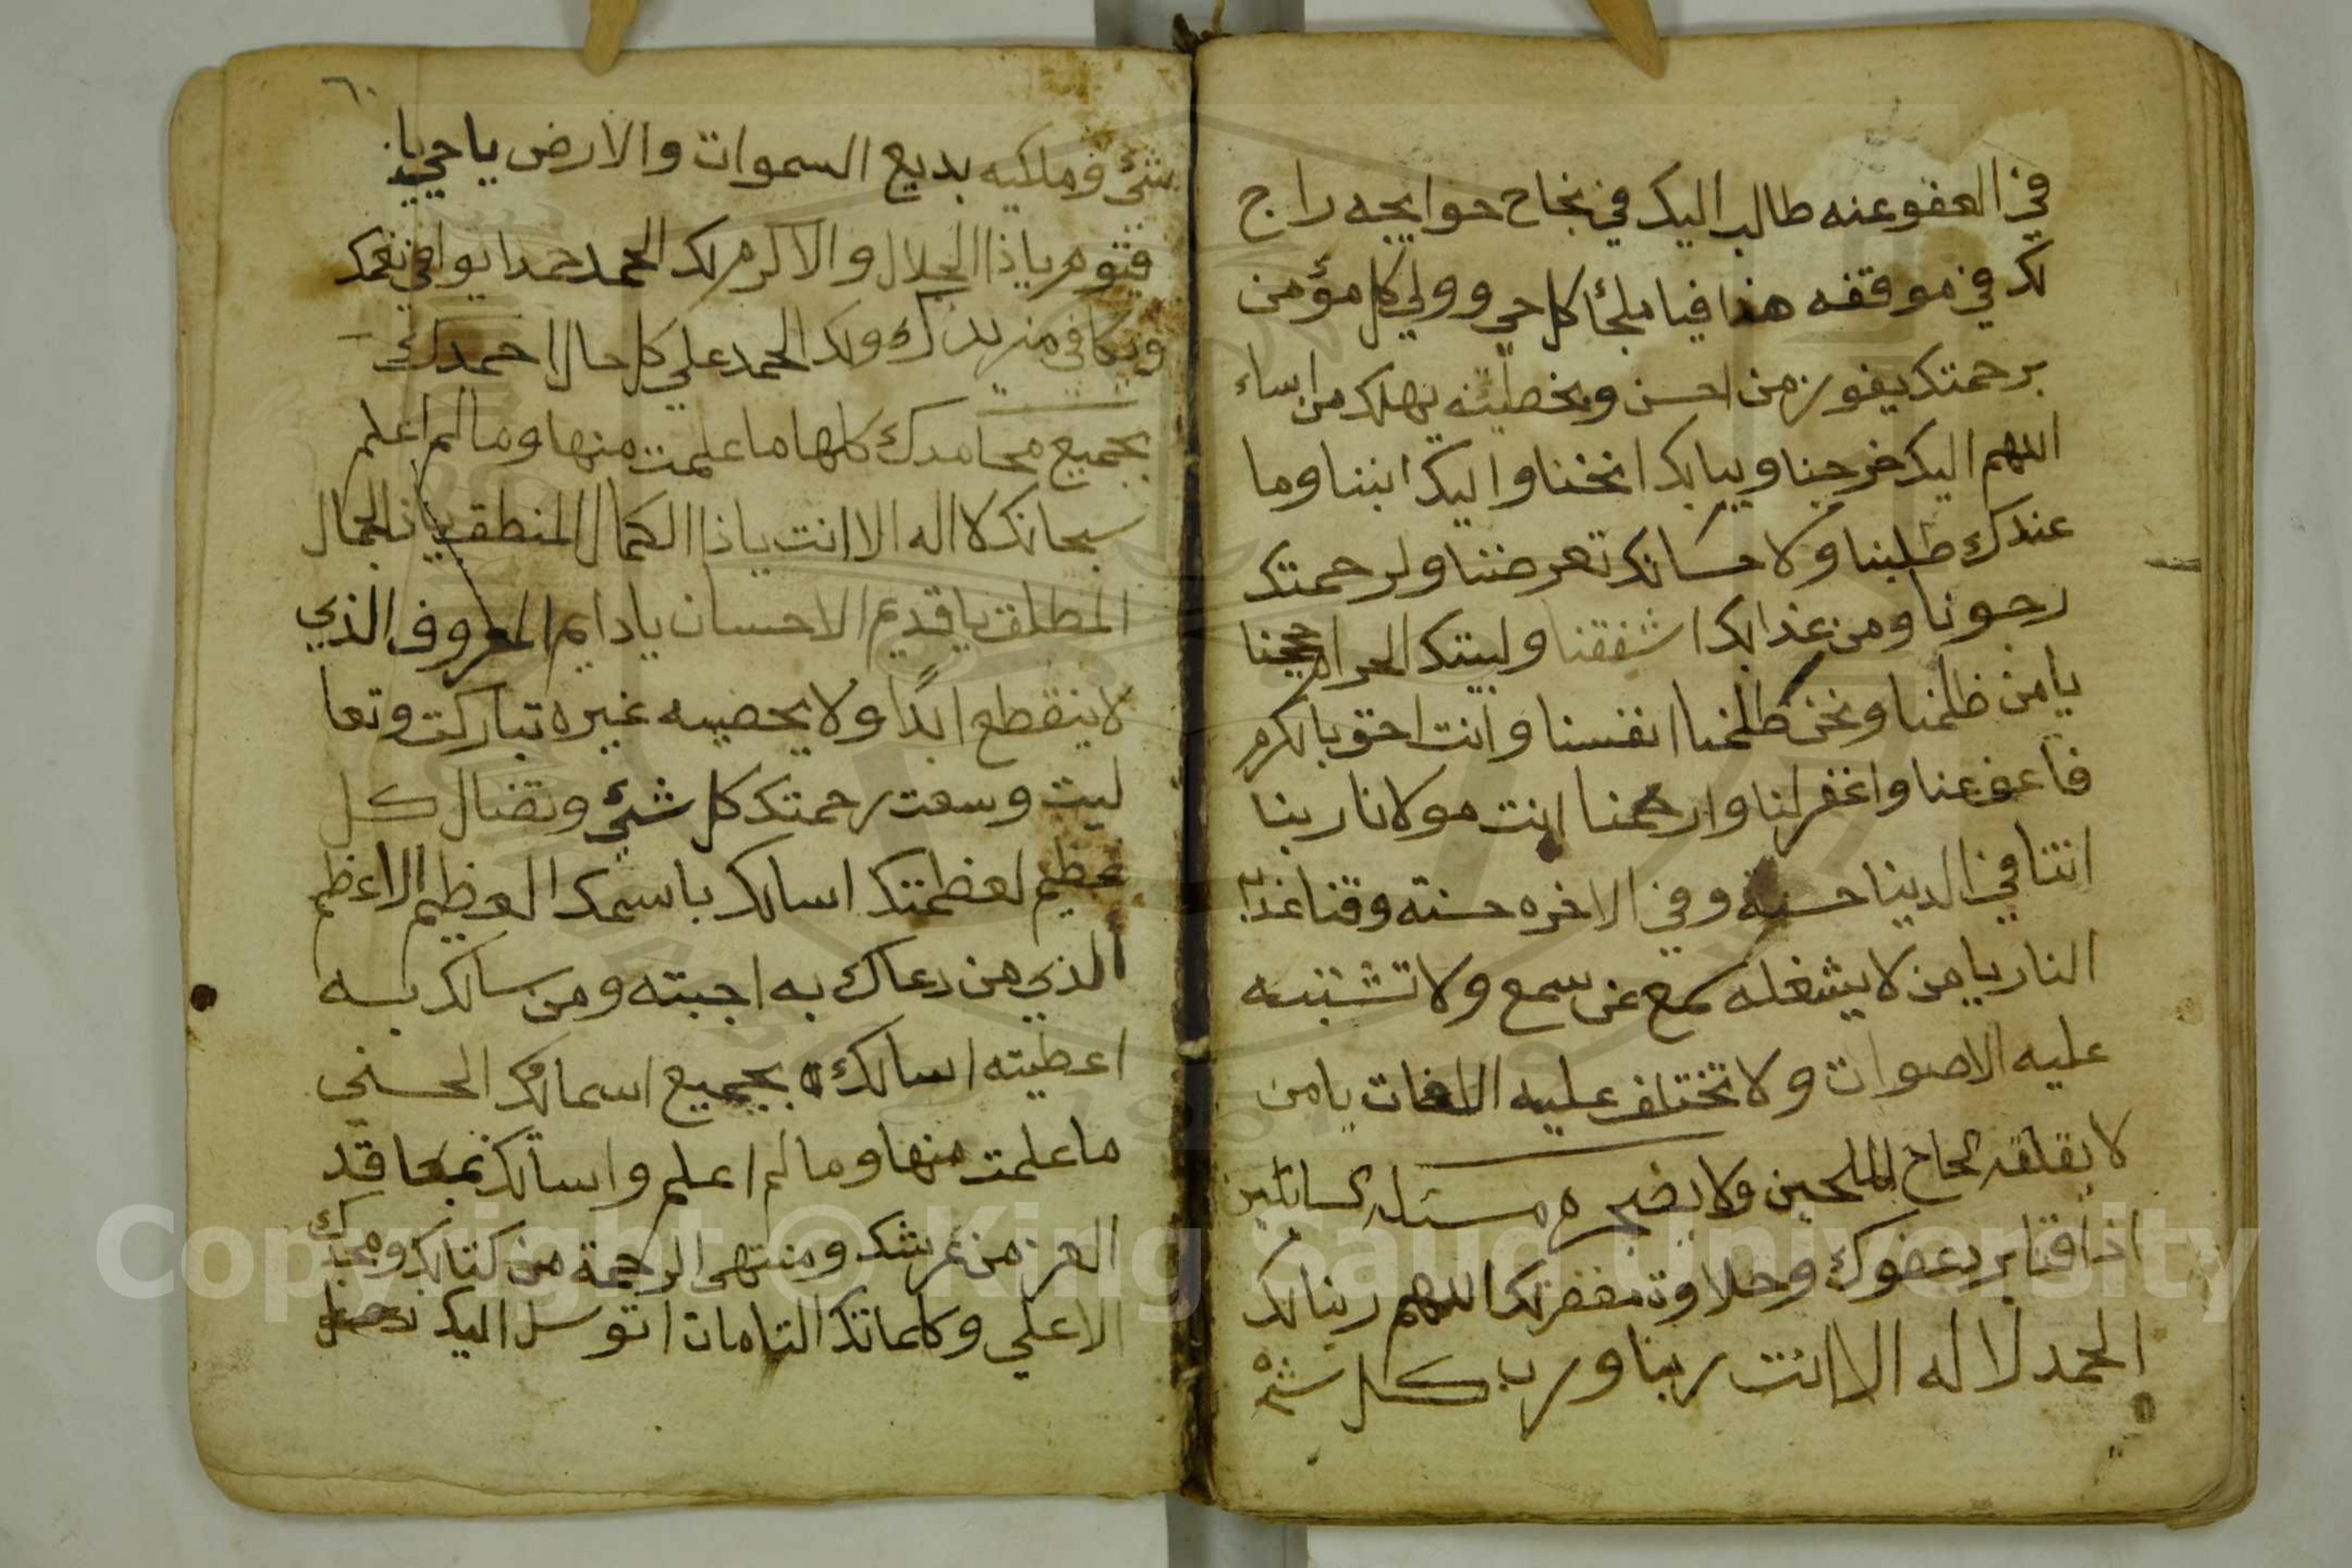 في العفو عنه طالب اليك في نجاح حوايجه راج
لك في موقفه هذا فيا ملجأ كل حي وولي كل مؤمن
برحمتك يفوز من احسن وبخطيئته يهلك من اساء
اللهم اليك خرجنا وببابك انخنا واليك انبنا وما
عندك طلبنا ولاحسانك تعرضنا ولرحمتك
رجونا ومن عذابك اشفقنا ولبيتك الحرام حججنا
يا من ظلمنا ونحن ظلمنا انفسنا وانت احق بالكرم
فاعفو عنا واغفر لنا وارحمنا انت مولانا ربنا
اتنا في الدنيا حسنة وفي الاخره حسنه وقنا عذاب
النار يا من لا يشغله سمع عن سمع ولا تشتبه
عليه الاصوات ولا تختلف عليه اللغات يا من
لا يقلقه الحاح الملحين ولا يضجره مسئلة السائلين
اذاقنا برد عفوك وحلاوة مغفرتك اللهم ربنا لك
الحمد لا اله الا انت ربنا ورب كل شئ
٦٠
شئ ومليكه بديع السموات والارض يا حي يا
قيوم يا ذا الجلال والاكرم لك الحمد حمدا يوافي نعمك
ويكافي مزيدك ولك الحمد علي كل حال احمدك
بجميع محامدك كلها ما علمت منها وما لم اعلم
سبحانك لا اله الا انت يا ذا الكمال المنطق يا ذا الجمال
المطلق يا قديم الاحسان يا دايم المعروف الذي
لا ينقطع ابدًا ولا يحصيه غيره تباركت وتعا
ليت وسعت رحمتك كل شئ وتضال كل
عظيم لعظمتك اسالك باسمك العظيم الاعظم
الذي من دعاك به اجبته ومن سالك بسه
اعطيته اسالك بجميع اسمائك الحسني
ما علمت منها وما لم اعلم واسالك بمعاقد
العز من عرشك ومنتهى الرحمة من كتابك ومجدك
الاعلي وكلماتك التامات اتوسل اليك
Copyright © King Saud University